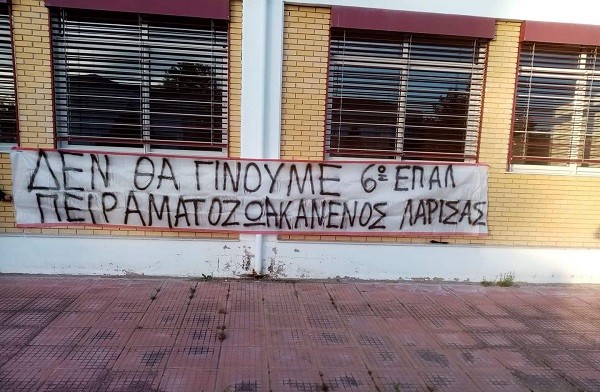 ΔΕΝ ΘΑ ΓΙΝΟΥΜΕ 6ο ΕΠΑΛ
ΠΕΙΡΑΜΑΤΟΖΩΑ ΚΑΝΕΝΟΣ ΛΑΡΙΣΑΣ